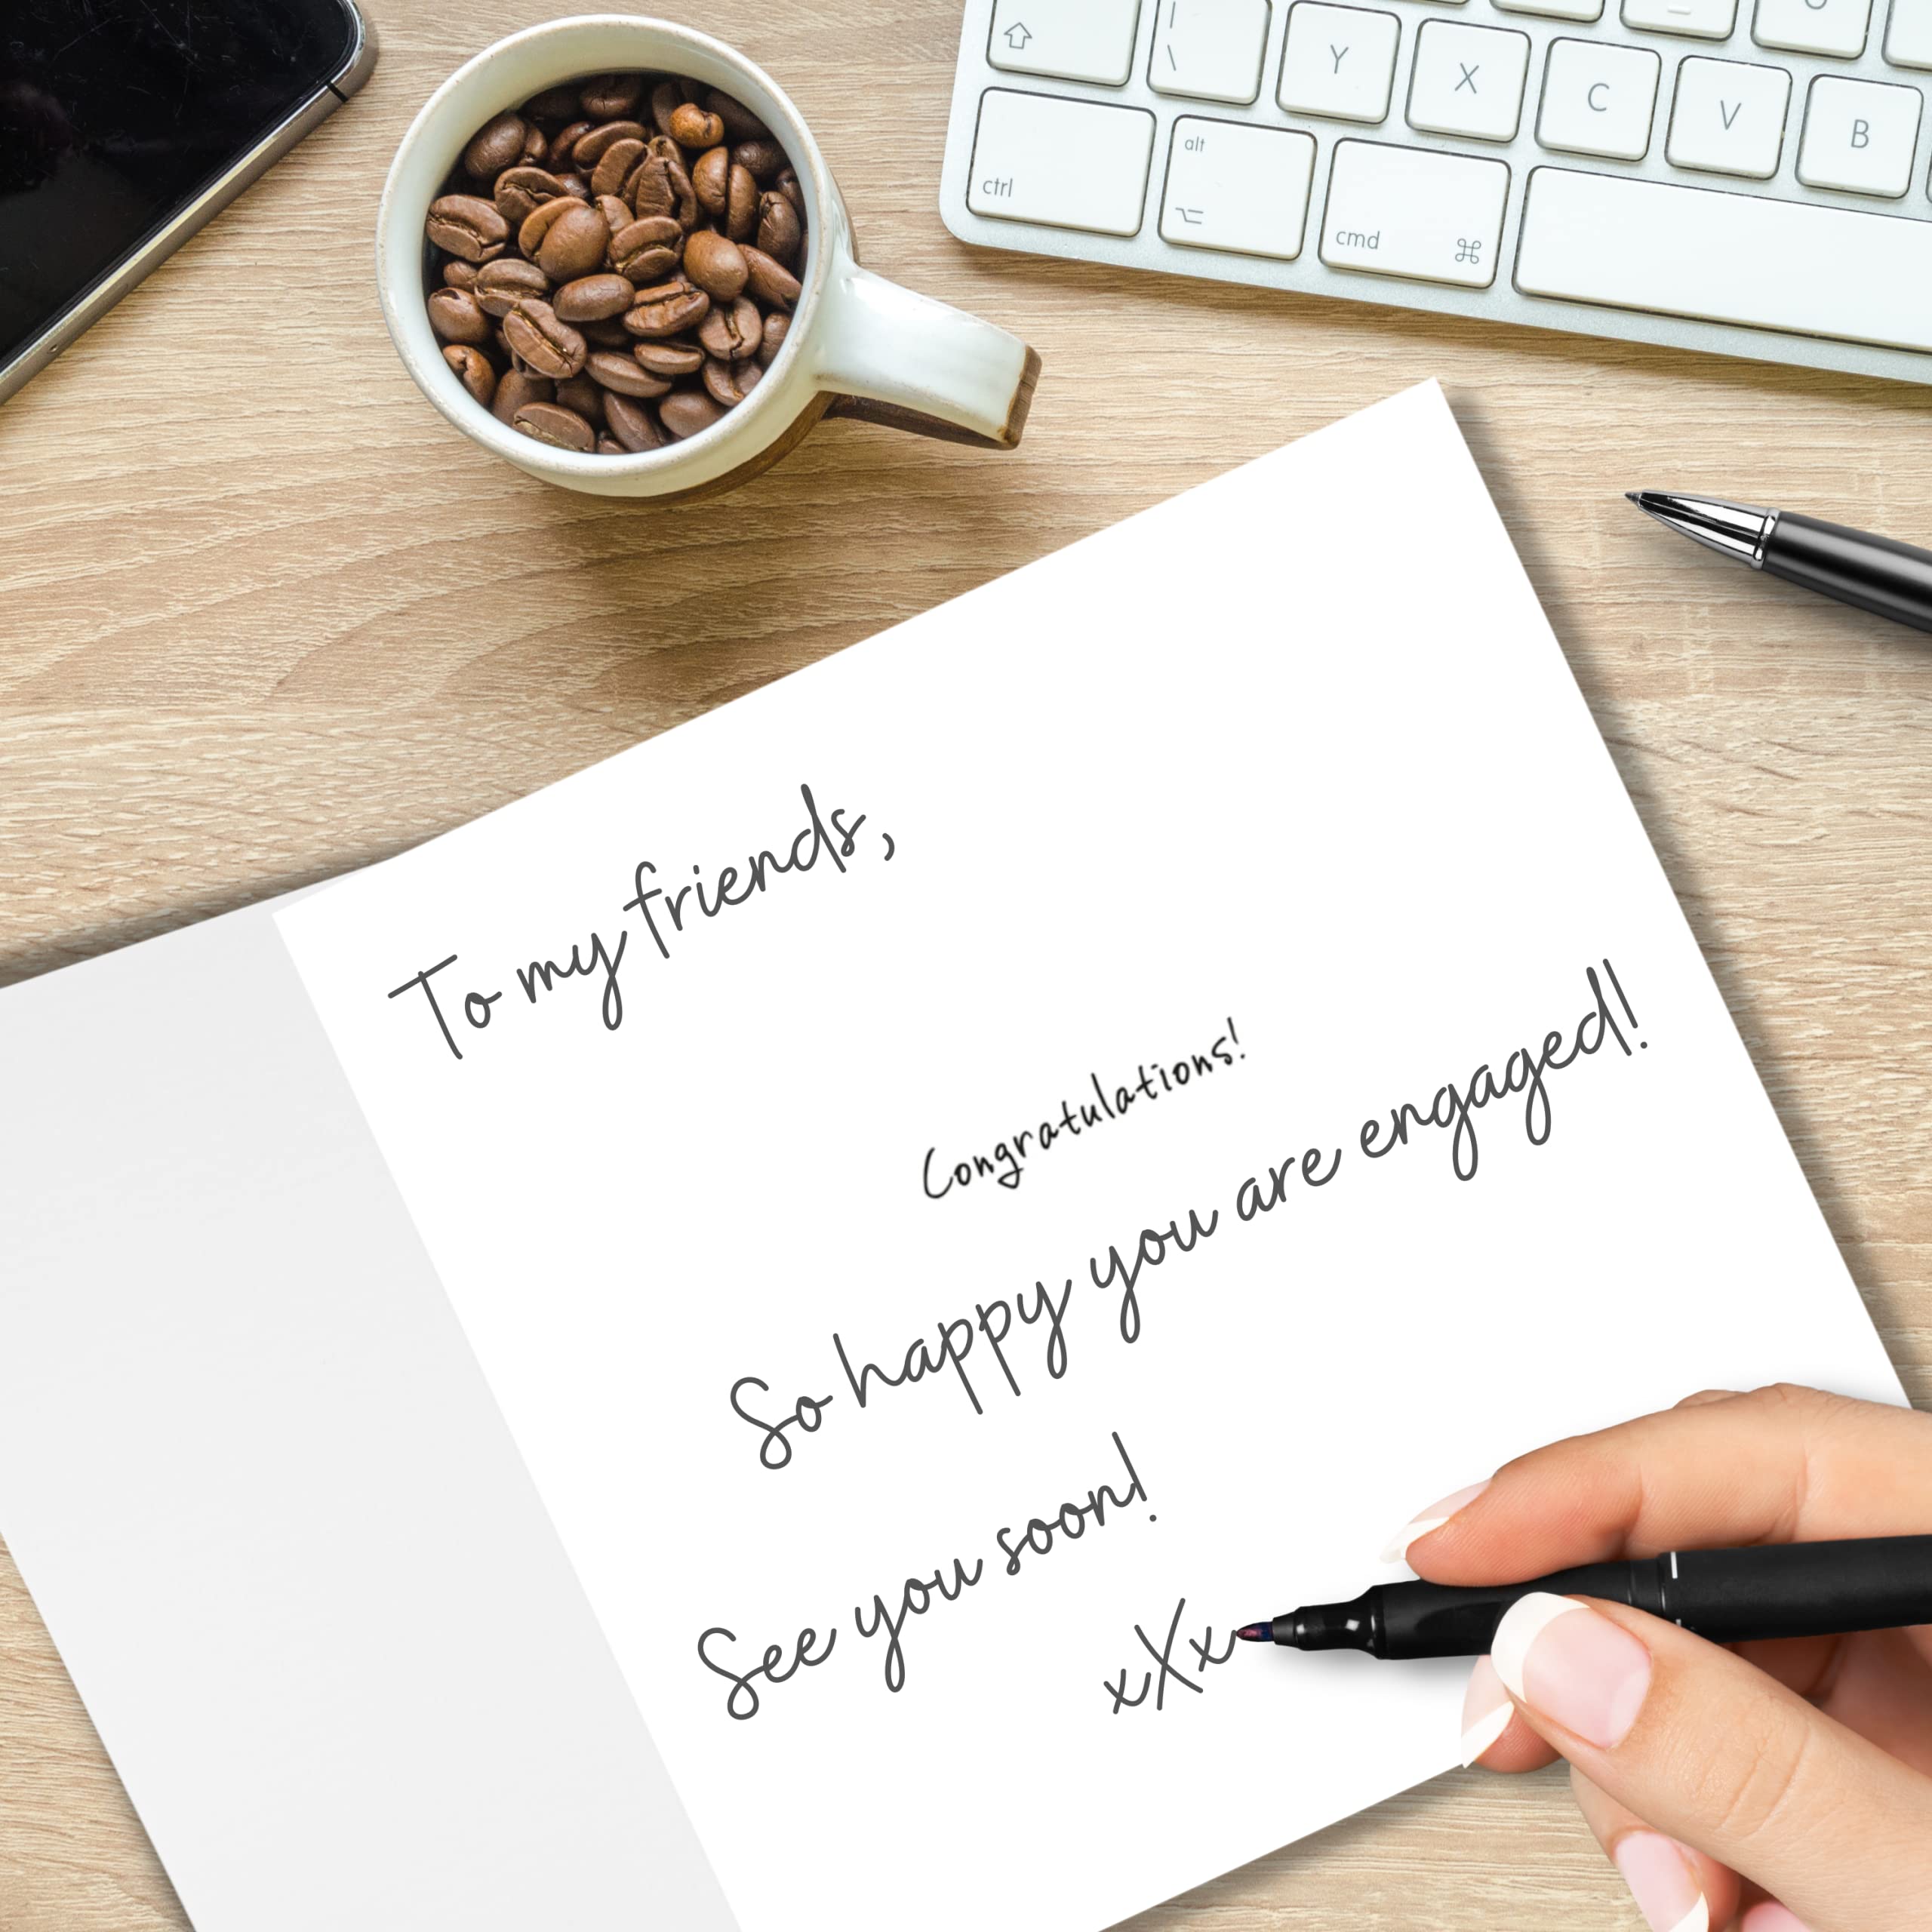 Y X C V B
ctrl alt cmd ⌘
To my friends,
Congratulations!
So happy you are engaged!
See you soon!
xXx